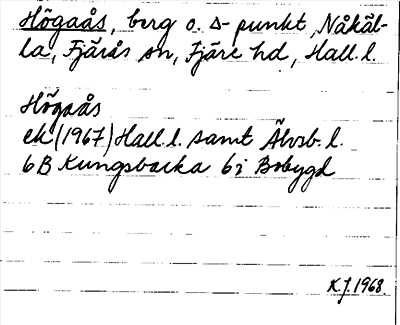 Högaås, berg o. Δ-punkt, Nåkäl-
la, Fjärås sn, Fjäre hd, Hall. l.
Högaås
ek (1967) Hall. l. samt Älvsb. l.
6B Kungsbacka 6i Bobygd
K.J. 1968.